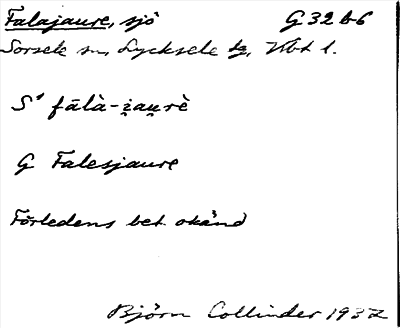 Falajaure, sjö G 32 b 6
Sorsele sn, Lycksele lg, Vbt l.
S¹ fālà-i̯au̯rè
G Falesjaure
Förledens bet. okänd
Björn Collinder 1937